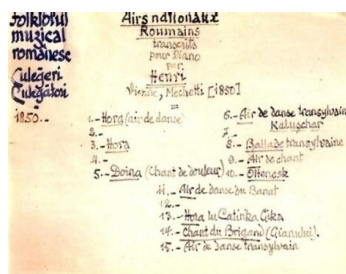 folklorul
muzical
românesc
Culegeri
Culegători
1850.-
Airs nationaux
Roumains
transcrits
pour Piano
par
Henri
Vienne, Mechetti [1850]
1.- Hora (air de danse)
2.-
3.- Hora
4.-
5.- Doina (Chant de douleur)
6.- Air de danse transylvain
Kaluschar
7.-
8.- Ballade transylvaine
9.- Air de chant
10.-
11.- Air de danse du Banat
12.-
13.- Hora lu Catinka Gika
14.- Chant du Brigand (Gianului).
15.- Air de danse transylvain